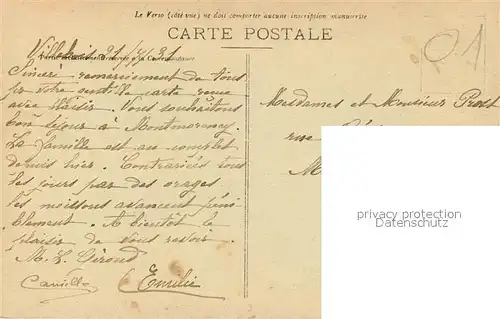 Le Verso (côté vue) ne doit comporter aucune inscription manuscrite
CARTE POSTALE
à la Correspondance
21/7/31
01
Sincère remerciement de tous
pr votre gentille carte reçue
avec plaisir. Vous souhaitons
bon séjour à Montmorency
La famille est au complet
depuis hier. Contrariés tous
les jours par des orages
les moissons avancent péni
blement. A bientôt le
plaisir de vous revoir.
M. L. Giroud
Camille Emilie
Mesdames et Monsieur Prost
rue
M
privacy protection
Datenschutz